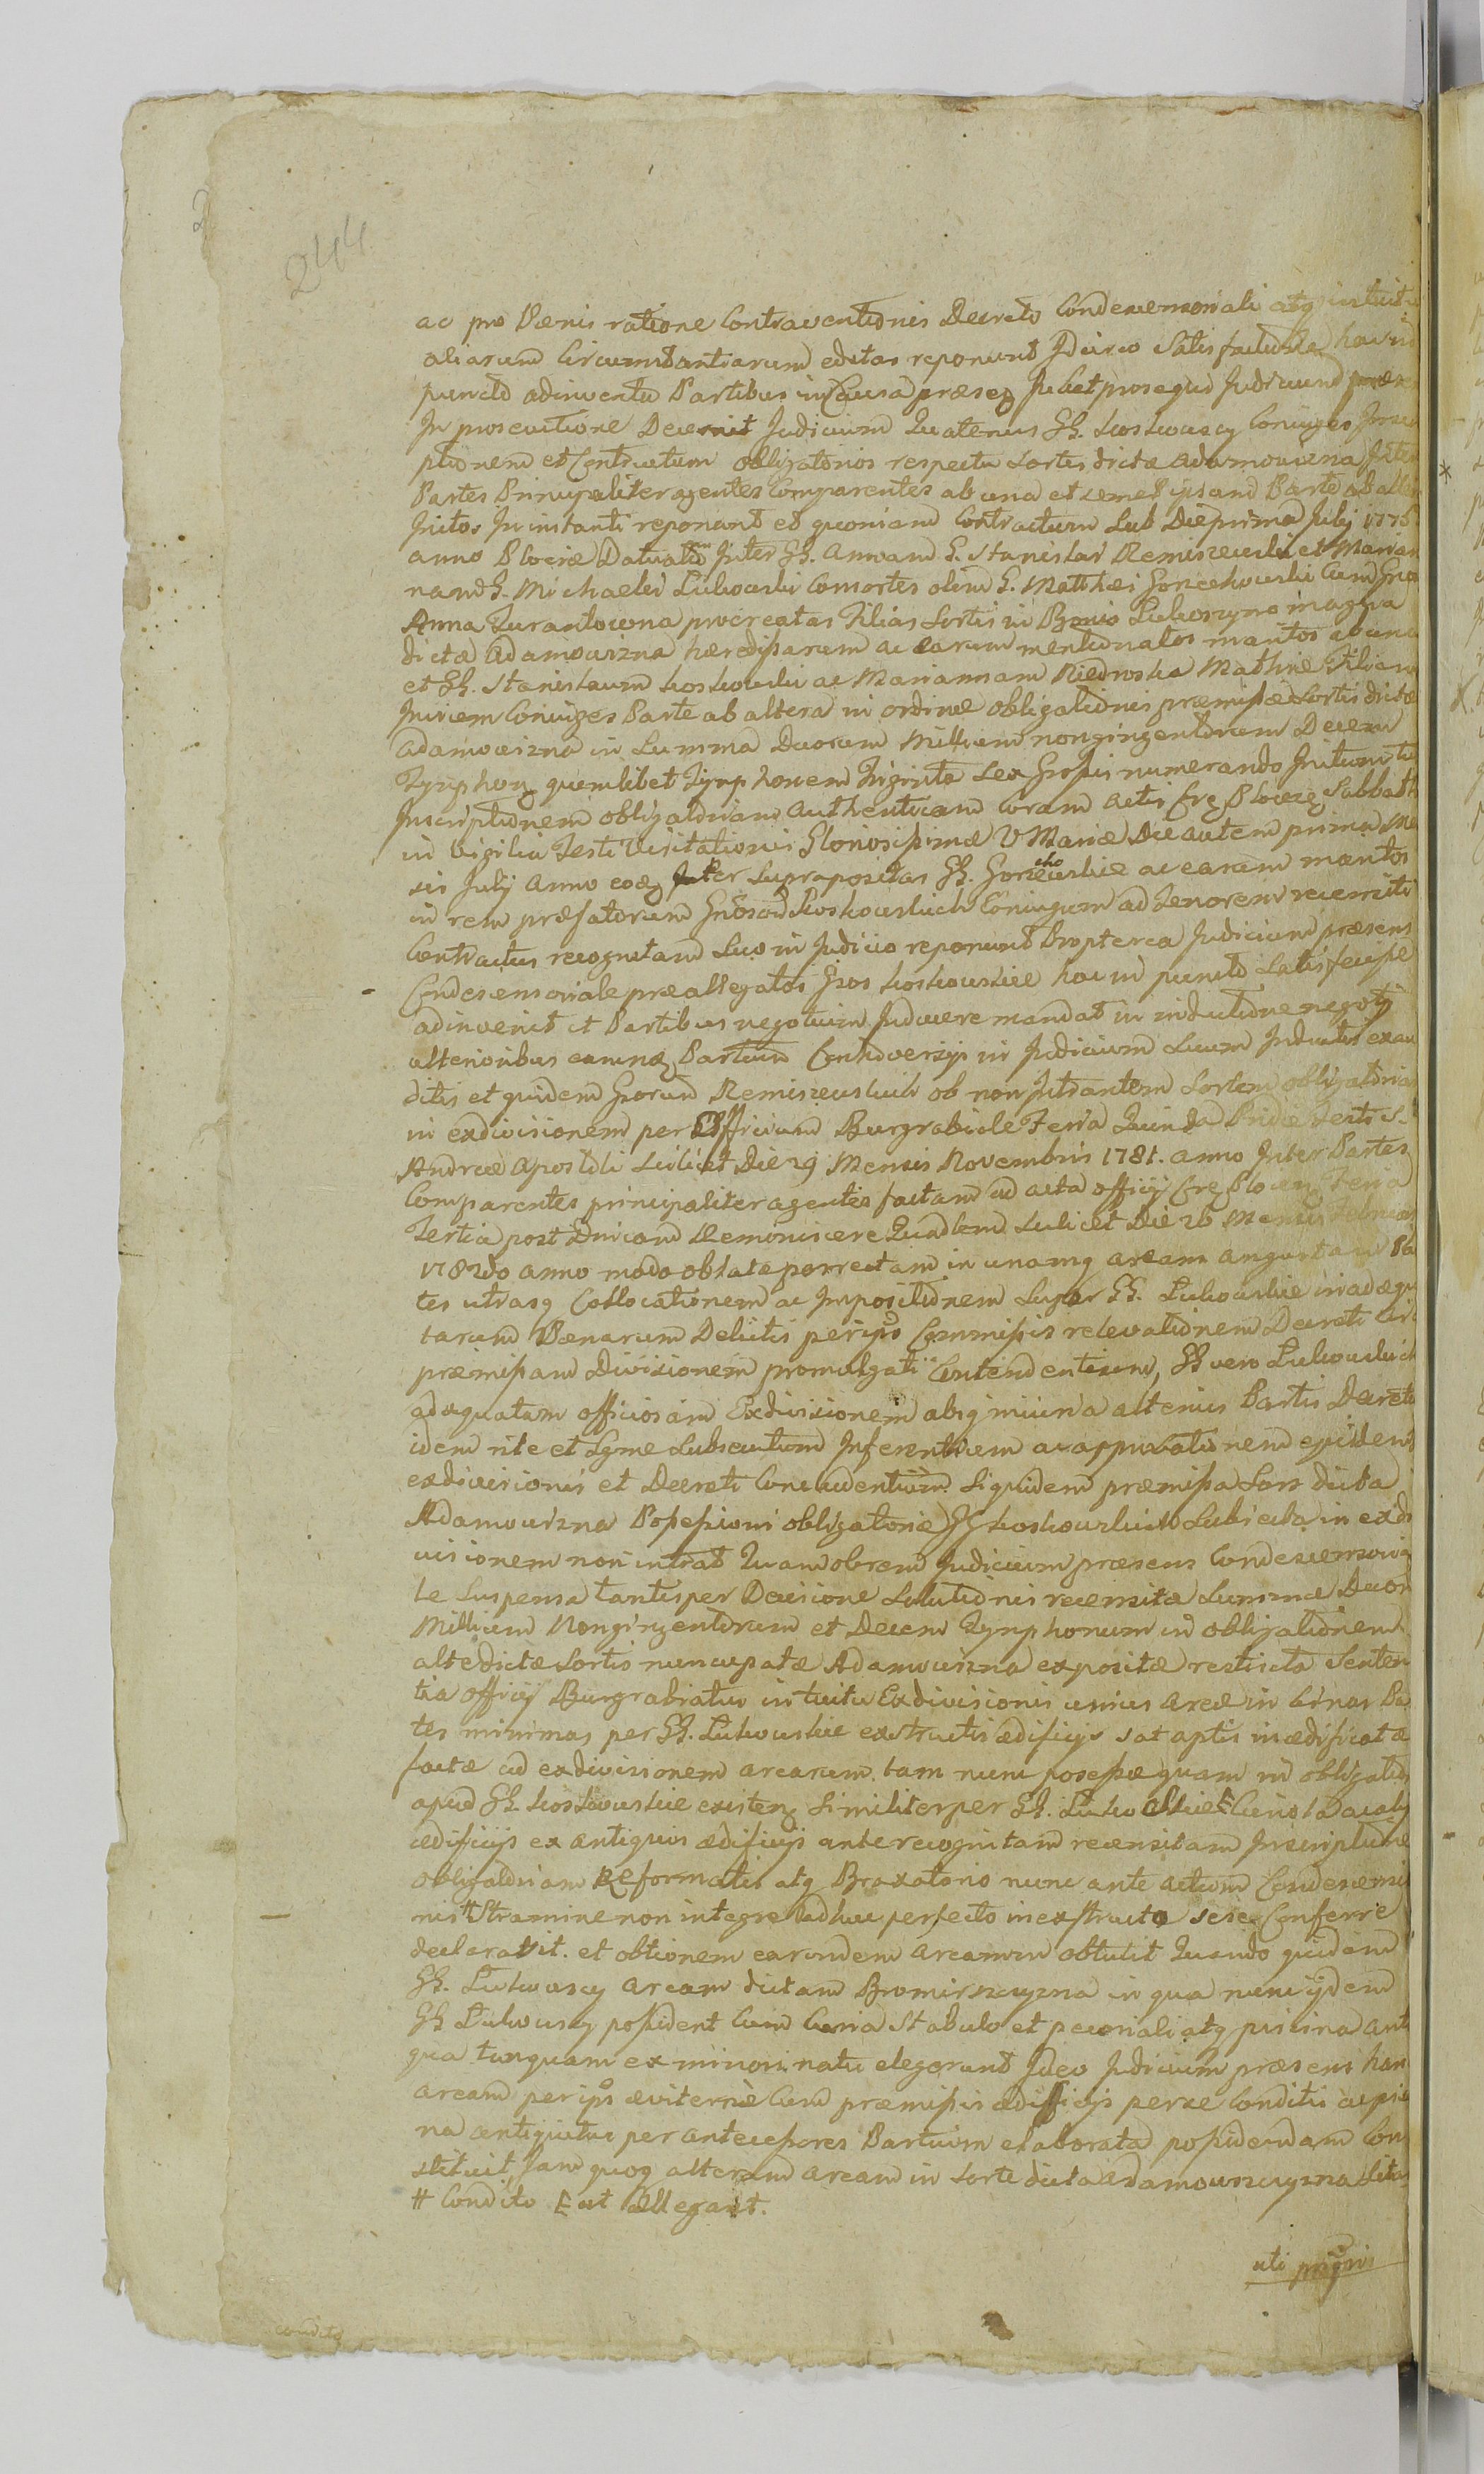 244
ac pro Pænis ratione Contraventionis Decreto Condescensoriali atq intuitu
aliarum Circumstantiarum editas reponunt Idcirco Satisfactum hac in
puncto adinvento Partibus in Causa præseq Jubet prosequi Judicium
In prosecutione Decernit Judicium Quatenus GG. Koskowscy Coniuges Inscri
ptionem et Contractum obligatorios respectu Sortis dictæ Adamowizna Inter
Partes Principaliter agentes Comparentes ab una et semet ipsam Parte ab altera
Initos In instanti reponant et quoniam Contractum Sub Die prima July 1775
anno Plociæ Datum Inter GG. Annam G. Stanislai Remiszewski et Marian
nam G. Michaelis Lukowski Consortes olim G. Matthæi Gorzechowski Cum Gnoa
Anna Turantowna procreatas Filias Sortis in Bonis Lukoszyno magna
dictæ Adamowizna hæredissarum ac earum mentionatos maritos ab una
et GG. Stanislaum Koskowski ac Mariannam Niedroska Mathiæ Filiam
Invicem Coniuges Parte ab altera in ordine obligationis præmissæ Sortis dictæ
Adamowizna in Summa Duorum Millium nongingentorum Decem
Tynphon quemlibet Tynphonem Triginta Sex Grossis numerando Initum tu
Inscriptionem obligatoriam Authenticam Coram Actis Plocen Sabbatho
in Vigilia Festi Visitationis Gloriosissimæ V Mariæ Die autem prima Men
sis July Anno eoq Inter Supra positas GG. Gorzechowskie ac earum maritos
in rem præfatorum Gnosorum Koskowskich Coniugum ad Tenorem recensiti
Contractus recognitam Suo in Judicio reponunt Propterea Judicium præsens
Condescensoriale præallegatos Gsos Koskowskie hac in puncto Satisfecisse
adinvenit et Partibus negotium Inducere mandat in inductione negotj
ulterioribus earumq Partium Controversijs in Judicium Suum Inductis exau
ditis et quidem Gsorum Remiszewskich ob non Intrantem Sortem obligatoriam
in exdivisionem per Officium Burgrabiale Feria Quinta Pridie Festi S.
Andreæ Apostoli Scilicet Die 29 Mensis Novembris 1781. anno Inter Partes
Comparentes principaliter agentes factam ad acta officij Plocen Feria
Tertia post Dnicam Reminiscere Quadlem Scilicet Die 26 Mensis Februarij
1782do anno modo oblatæ porrectam in unamq aream angustam Par
tes utrasq Collocationem ac Impositionem Super GG. Lukowskie inadæqua
tarum Pænarum Delictis per ipsos Commissis relevationem Decreti circa
præmissam divisionem promulgati Contendentium, GG vero Lukowskich
adæquatam officiosam Exdivisionem absq iniuria alterius Partis Decreto
idem rite et Lgme Subsecutum Inferentium ac approbationem
exdivisionis et Decreti Concludentium. Siquidem præmissa Sors dicta
Adamowizna Possessioni obligatoriæ GG Koskowskich Subiecta in exdi
visionem non intrat Quamobrem Judicium præsens Condescensoria
le Suspensa tantisper Decisione Solutionis recensitæ Summæ Duor
Millium Nongingentorum et Decem Tynphonum in obligationem
altedictæ Sortis nuncupatæ Adamowizna expositæ restricta Senten
tia officij Burgrabiatus intuitu Exdivisionis unius areæ in binas Par
tes minimas per GG. Lukowskie exstructis ædificijs sat aptis inædificatæ
factæ ad exdivisionem arearum tam nunc possessæ quam in obligatio
apud GG. Koskowskie existen Similiter per GG.
ædificijs ex antiquis ædificijs ante recognitam recensitam Inscriptione
obligatoriam Reformatis atq Braxatorio nunc ante actum Condescensio
nis # Stramine non integre adhuc perfecto inexstructo sese Conferre
declaravit. et obtionem earundem arearum obtulit Quando quidem
GG. Lukowscy aream dictam Bromirszczyzna in qua nunc ijdem
GG Lukowscy possident Cum Curia Stabulo et pecoriali atq piscina anti
qua tanquam ex minori natu elegerunt Ideo Judicium præsens han
aream per ipsos æviterne Cum præmissis ædificijs per se Conditis ac pisci
na antiquitus per antecessores Partium elaborata possidendam Con
stituit, Jam quoq alteram aream in Sorte dicta Adamowszczyzna Sitam
# Condito Eat allegant.
uti prioris
condito